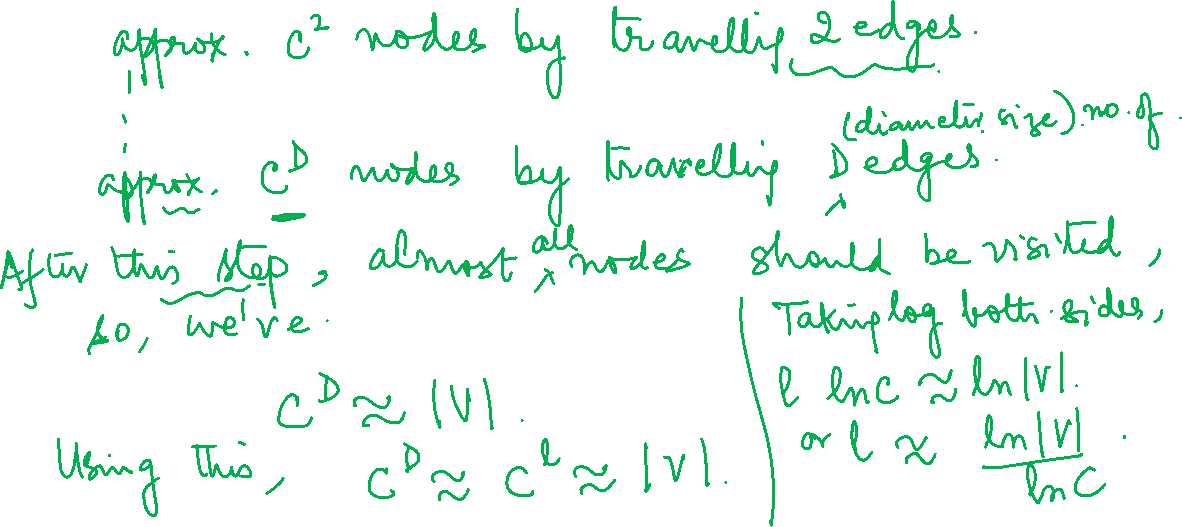 approx. c² nodes by travellig 2 edges.
approx. c^D nodes by travellig D (diameter size) no. of edges.
After this step, almost all nodes should be visited,
so, we've.
c^D ≈ |V|.
Using this, c^D ≈ c^l ≈ |V|.
Taking log both sides,
l ln c ≈ ln |V|.
or l ≈ ln |V| / ln c.